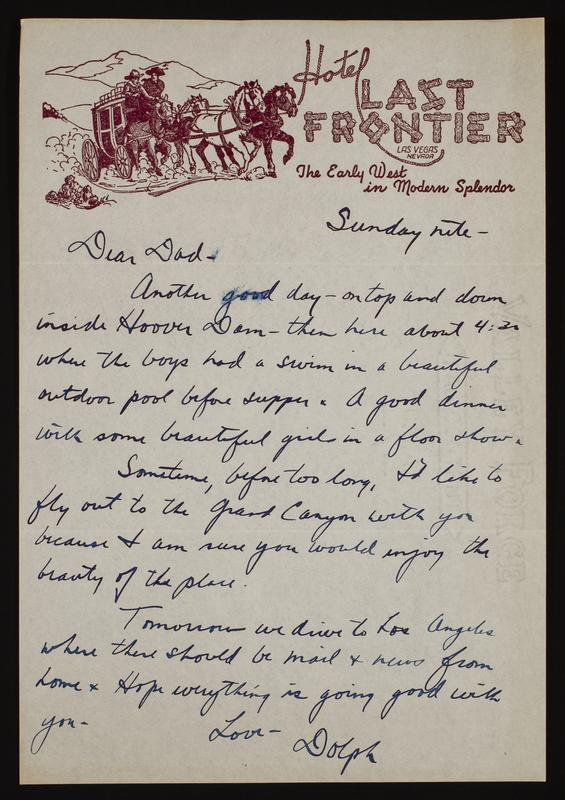 Hotel
LAST
FRONTIER
LAS VEGAS
NEVADA
The Early West
in Modern Splendor
Sunday nite -
Dear Dad -
Another good day - on top and down
inside Hoover Dam - then here about 4:30
where the boys had a swim in a beautiful
outdoor pool before supper. A good dinner
with some beautiful girls in a floor show.
Sometime, before too long, I'd like to
fly out to the Grand Canyon with you
because I am sure you would enjoy the
beauty of the place.
Tomorrow we drive to Los Angeles
where there should be mail & news from
home & Hope everything is going good with
you -
Love -
Dolph